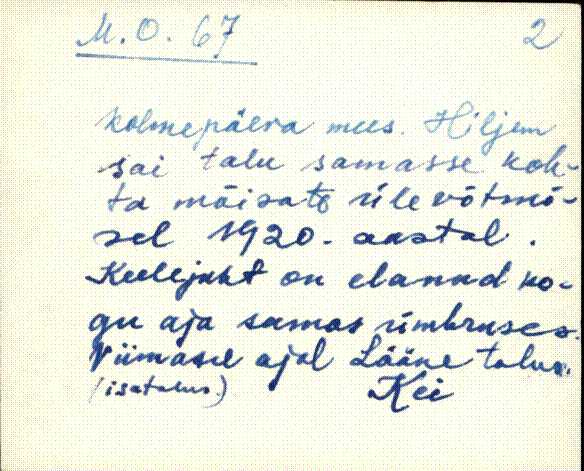 M. O. 67
2
kolmepäeva mees. Hiljem
sai talu samasse koh-
ta mõisate ülevõtmi-
sel 1920. aastal.
Keelejuht on elanud ko-
gu aja samas ümbruses.
Viimasel ajal Lääne talus.
(isatalus.) Kei